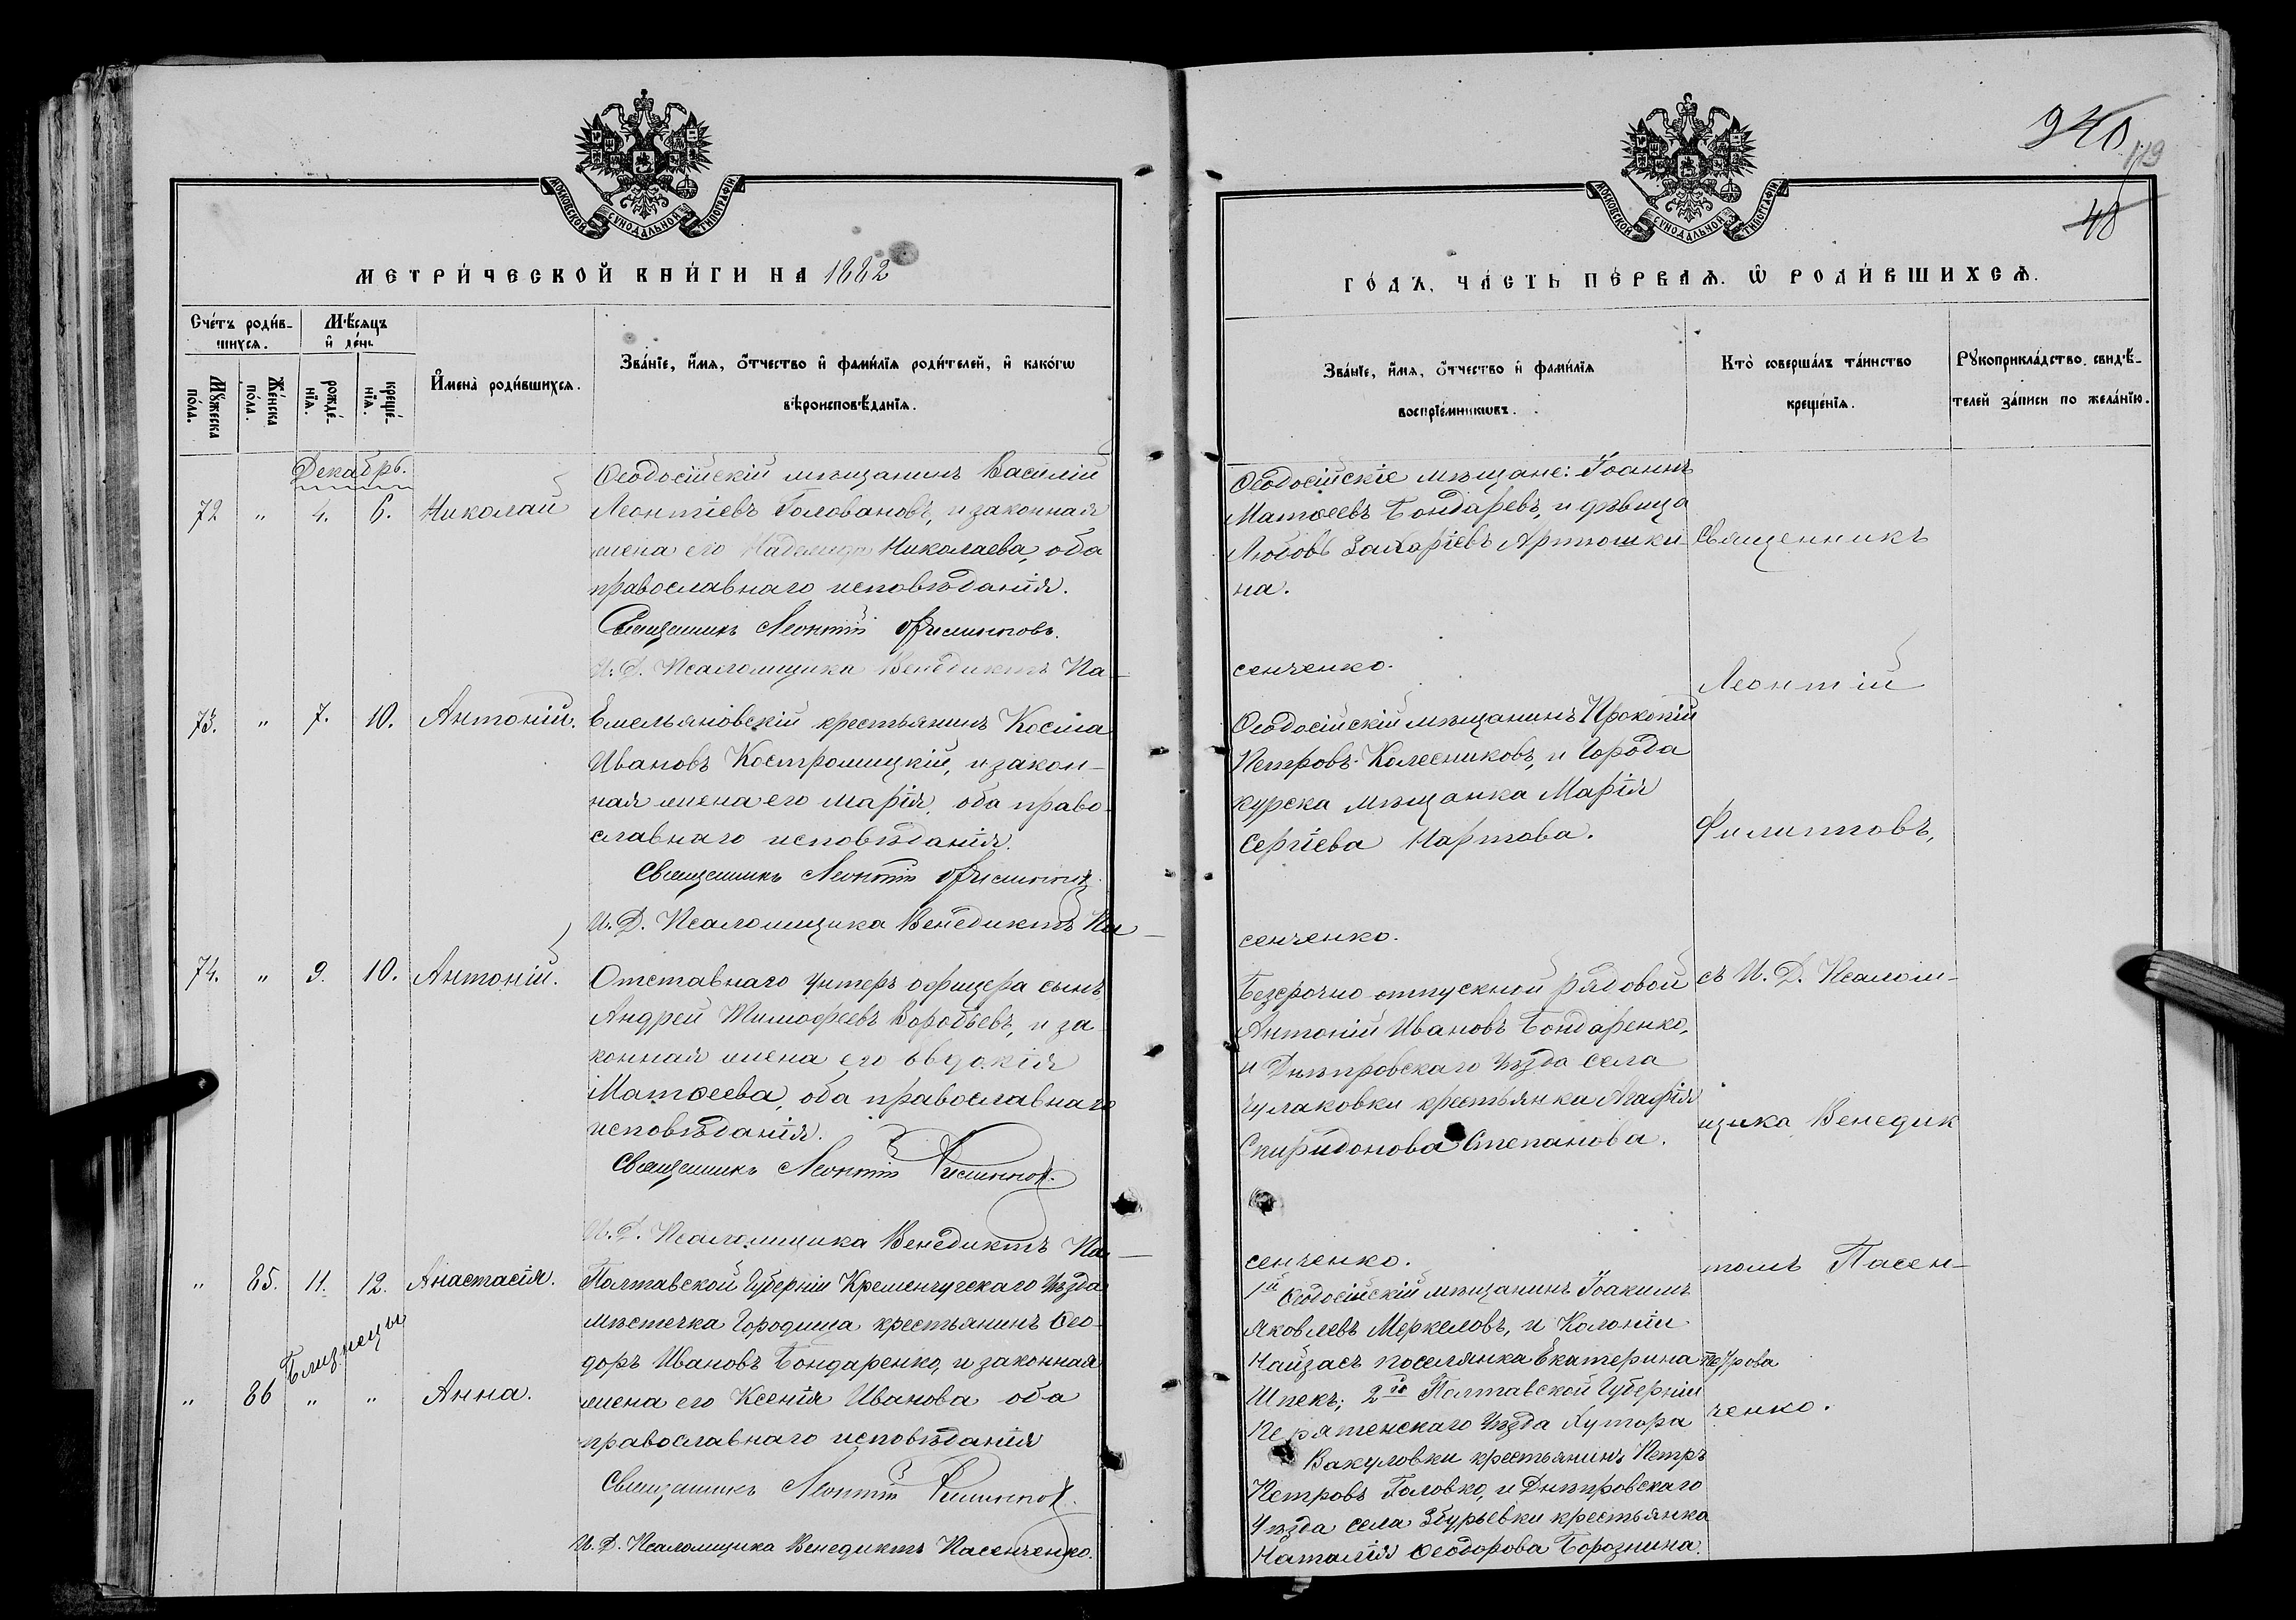 МОСКОВСКОЙ СУНОДАЛЬНОЙ ТИПОГРАФІИ
МЕТРИ́ЧЕСКОЙ КНИ́ГИ НА 1882
Сче́тъ роди́в-
шихсѧ.
Мѣ́сяцъ
и҆ де́нь.
Мꙋ́жеска
по́ла.
Же́нска
по́ла.
рожде́-
нїѧ.
креще́-
нїѧ.
И҆мена̀ роди́вшихсѧ.
Зва́нїе, и҆́мѧ, ѻ҆́тчество и҆ фами́лїѧ роди́телей, и҆ како́гѡ
вѣроисповѣ́данїѧ.
Декабрь.
72 " 4. 6. Николай
Ѳеодосійскій мѣщанинъ Василій
Леонтіевъ Головановъ, и законная
жена его Надежда Николаева, оба
православнаго исповѣданія.
Священникъ Леонтій Филипповъ.
И. Д. Псаломщика Венедиктъ Па-
73. " 7. 10. Антоній.
Емельяновскій крестьянинъ Косма
Ивановъ Костромицкій, и закон-
ная жена его Марія, оба право-
славнаго исповѣданія.
Священникъ Леонтій Филипповъ.
И. Д. Псаломщика Венедиктъ Па-
74. " 9. 10. Антоній.
Отставнаго унтеръ офицера сынъ
Андрей Тимофеевъ Воробьевъ, и за-
конная жена его Евдокія
Матѳеева, оба православнаго
исповѣданія.
Священникъ Леонтій Филипповъ.
И. Д. Псаломщика Венедиктъ Па-
" 85. 11. 12. Анастасія.
Близнецы
" 86 " " Анна.
Полтавской Губерніи Кременчугскаго Уѣзда
мѣстечка Городища крестьянинъ Ѳео-
доръ Ивановъ Бондаренко, и законная
жена его Ксенія Иванова оба
православнаго исповѣданія
Священникъ Леонтій Филипповъ.
И. Д. Псаломщика Венедиктъ Пасенченко.
240
119
48
МОСКОВСКОЙ СУНОДАЛЬНОЙ ТИПОГРАФІИ
ГО́ДЪ, ЧА́СТЬ ПЕ́РВАѦ. Ѡ҆ РОДИ́ВШИХСѦ.
Зва́нїе, и҆́мѧ, ѻ҆́тчество и҆ фами́лїѧ
воспрїе́мникѡвъ.
Кто̀ соверша́лъ та́инство
креще́нїѧ.
Рꙋкоприкла́дство свидѣ́-
телей за́писи по жела́нїю.
Ѳеодосійскіе мѣщане: Іоаннъ
Матѳеевъ Бондаревъ, и дѣвица
Любовь Захаріевъ Артюшки-
на.
сенченко.
Ѳеодосійскій мѣщанинъ Прокопій
Петровъ Колесниковъ, и Города
Курска мѣщанка Марія
Сергіева Нартова.
сенченко.
Безсрочно отпускной рядовой
Антоній Ивановъ Бондаренко,
и Днѣпровскаго Уѣзда села
Чулаковки крестьянка Агафія
Спиридонова Степанова.
сенченко.
1й Ѳеодосійскій мѣщанинъ Іоакимъ
Яковлевъ Меркеловъ, и Колоніи
Найзасъ поселянка Екатерина Петрова
Шпекъ; 2й Полтавской Губерніи
Пирятенскаго Уѣзда Хутора
Вакуловки крестьянинъ Петръ
Петровъ Головко, и Днѣпровскаго
Уѣзда села Збурьевки крестьянка
Наталія Ѳеодорова Борознина.
Священникъ
Леонтій
Филипповъ,
съ И. Д. Псалом-
щика Венедик
томъ Пасен-
ченко.